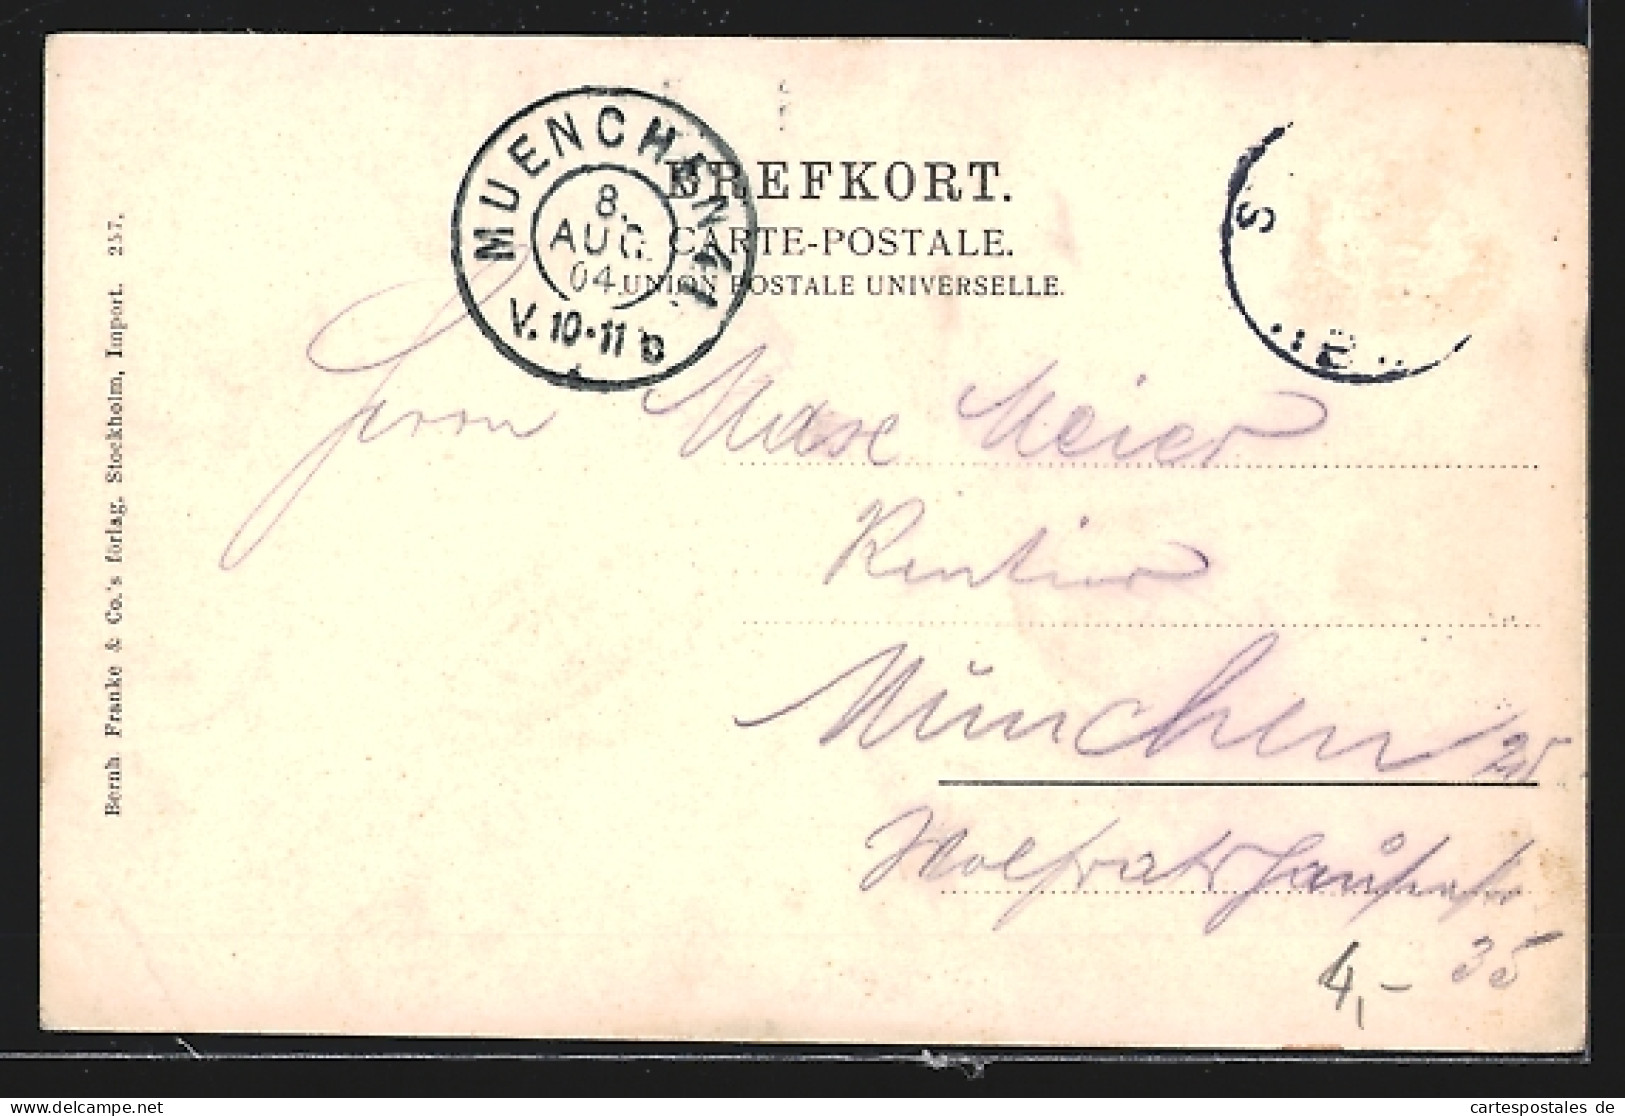 MUENCHEN
8.
AUG.
04.
V. 10-11
BREFKORT.
CARTE-POSTALE.
UNION POSTALE UNIVERSELLE.
S
Herrn Max Meier
Rentier
München 25
Wolfratshauserstr
35
4,-
Bernh. Franke & Co.'s förlag, Stockholm, Import. 257.
cartespostales de